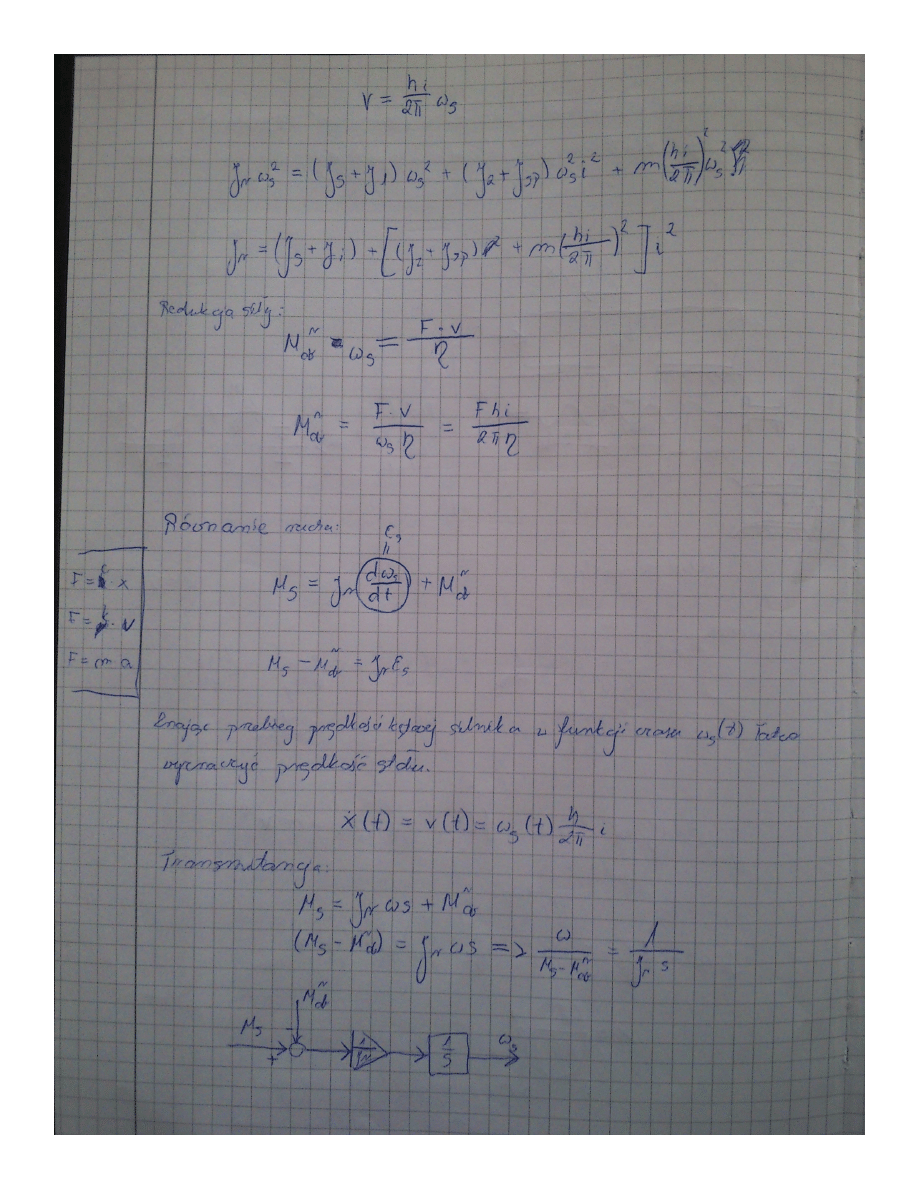 v = hi/2π ω_s
J_zr ω_s² = (J_s + J_1) ω_s² + (J_2 + J_śp) ω_s² i² + m(hi/2π)² ω_s²
J_zr = (J_s + J_1) + [(J_2 + J_śp) + m(hi/2π)²] i²
Redukcja siły:
M_ob^zr ω_s = F · v / η
M_ob^zr = F · v / ω_s η = F h i / 2π η
Równanie ruchu:
ε_s
=
M_s = J_zr dω_s/dt + M_ob^zr
F = c · x
F = k · v
F = m a
M_s − M_ob^zr = J_zr ε_s
Znając przebieg prędkość kątowej silnika w funkcji czasu ω_s(t) łatwo
wyznaczyć prędkość stołu.
ẋ(t) = v(t) = ω_s(t) h/2π i
Transmitancja:
M_s = J_zr ωs + M_ob^zr
(M_s − M_ob^zr) = J_zr ωs => ω / M_s − M_ob^zr = 1 / J_zr s
M_ob^zr
M_s − + 1/J_zr 1/s ω_s